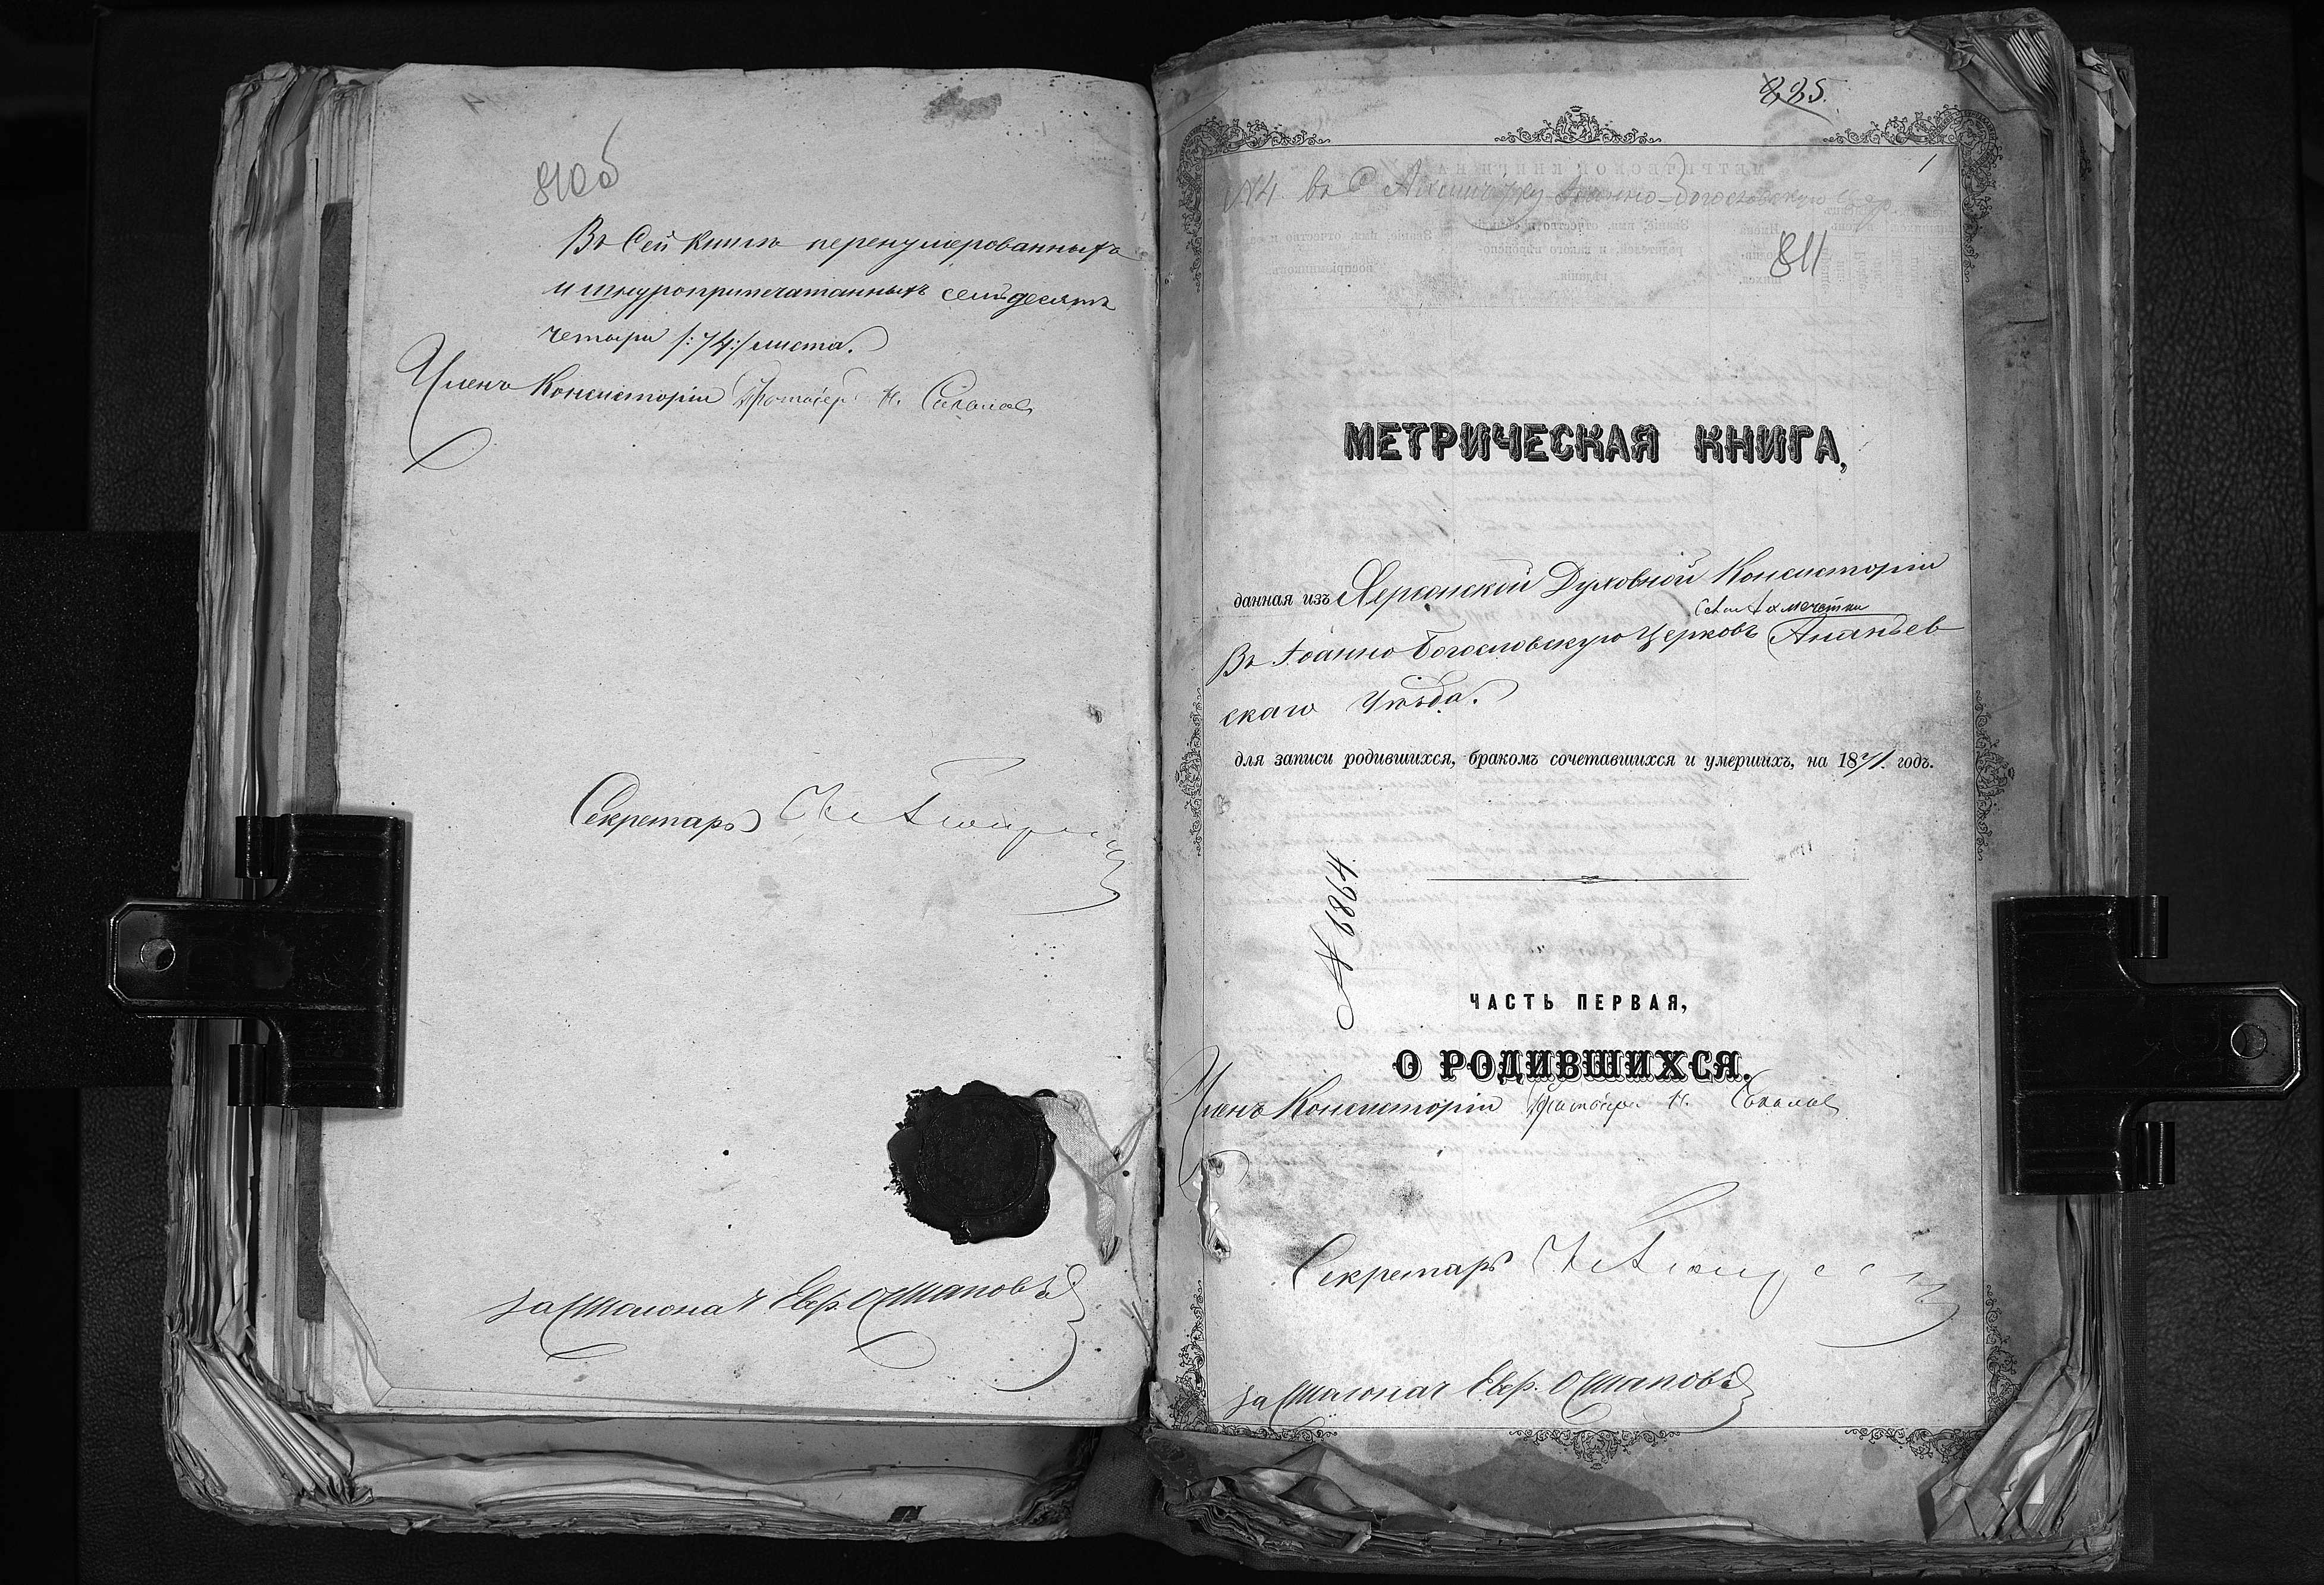 810об
Въ Сей Книгѣ перенумерованныхъ
и шнуроприпечатанныхъ семьдесятъ
четыри /:74:/ листа.
Членъ Консисторіи Протоіер Н. Соколовъ
Секретарь
за Столонач Евф. Остаповъ
885.
1
№4. въ С Иоанно-Богословскую Цер.
811
МЕТРИЧЕСКАЯ КНИГА,
данная изъ Херсонской Духовной Консисторіи
села Ахмечетки
Въ Іоанно Богословскую Церковь Ананьев
скаго Уѣзда.
для записи родившихся, бракомъ сочетавшихся и умершихъ, на 1871. годъ.
№ 6864.
ЧАСТЬ ПЕРВАЯ,
О РОДИВШИХСЯ.
Членъ Консисторіи Протоіер Н. Соколовъ
Секретарь
за Столонач Евф. Остаповъ